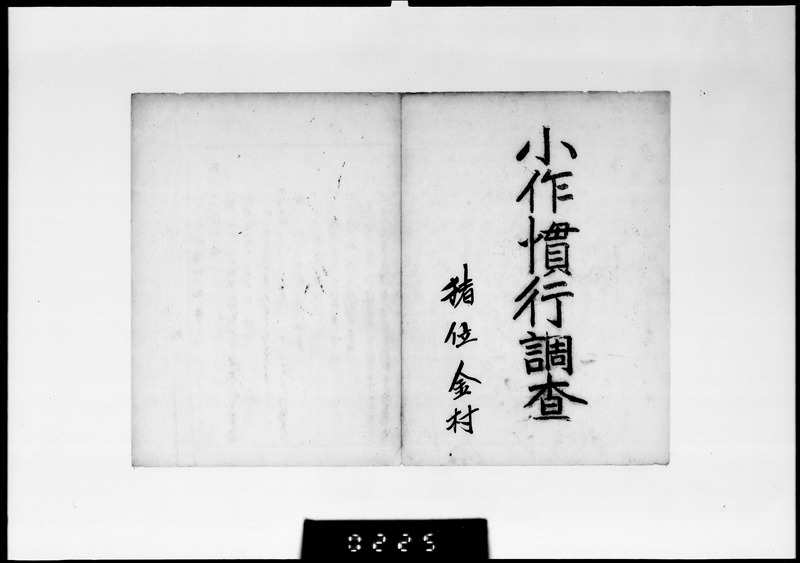 小作慣行調査
猪位金村
0225